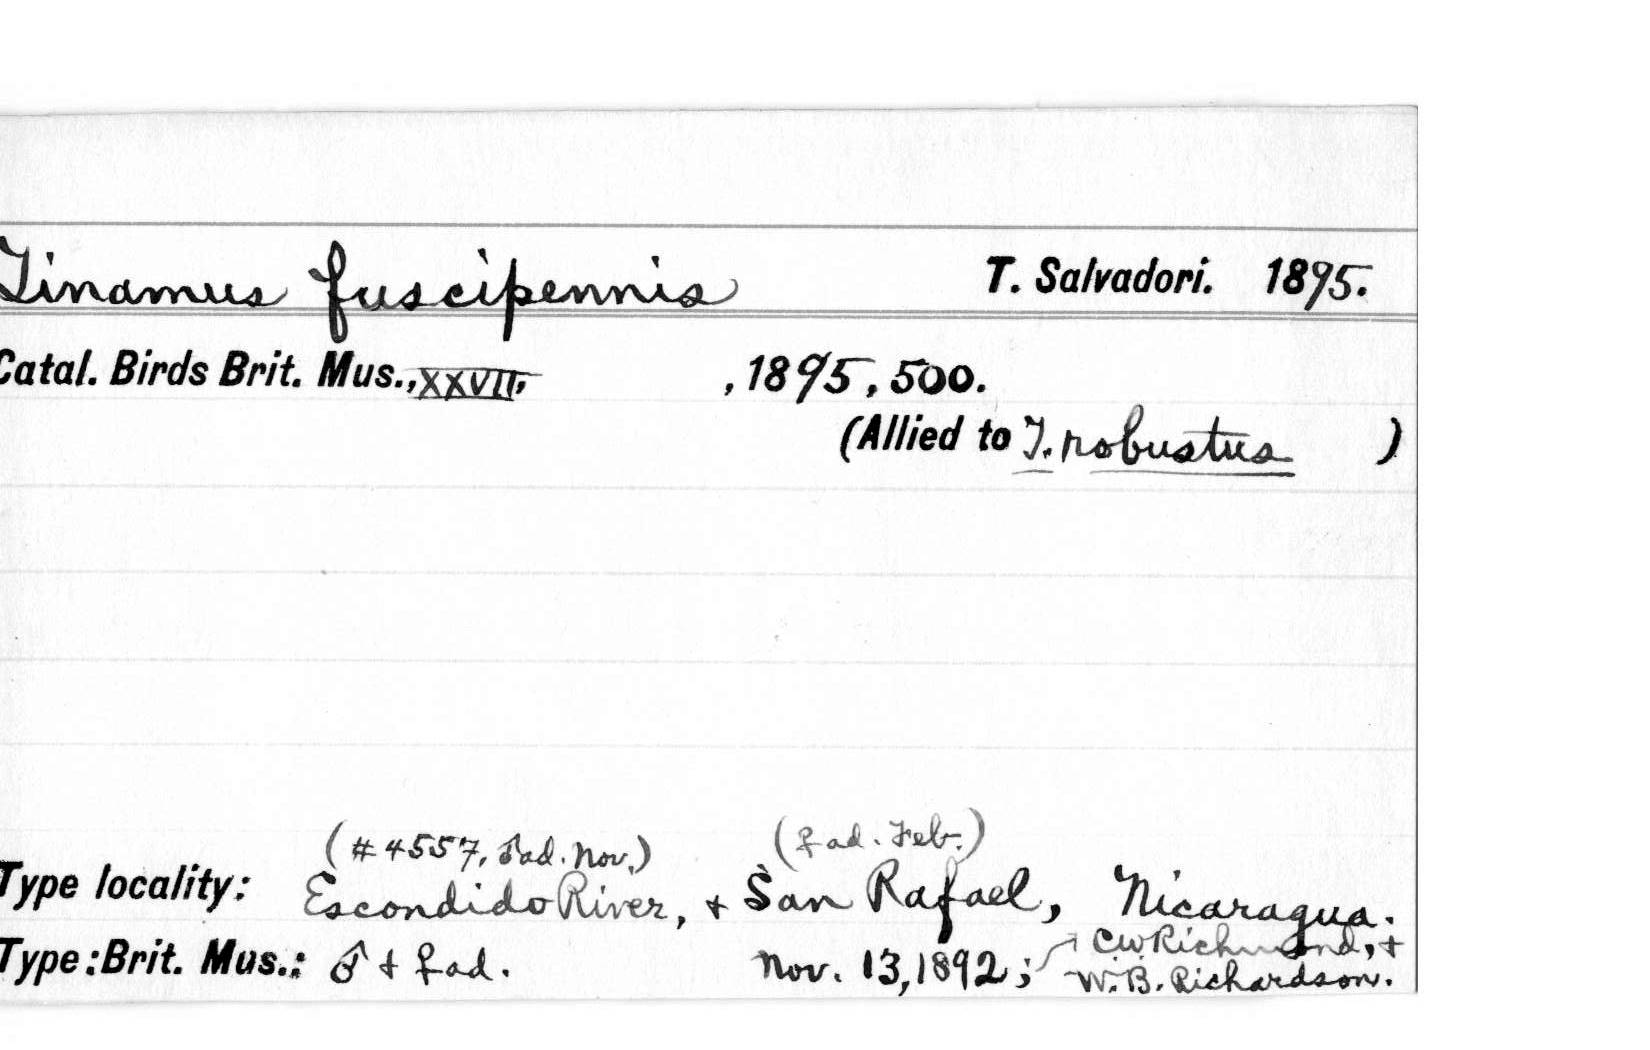 Tinamus fuscipennis T. Salvadori. 1895.
Catal. Birds Brit. Mus., XXVII, , 1895, 500.
(Allied to T. robustus )
(#4557, ♂ad. Nov.) (♀ ad. Feb.)
Type locality: Escondido River, + San Rafael, Nicaragua.
Type: Brit. Mus.: ♂ + ♀ad. Nov. 13, 1892; C.W. Richmond, +
W. B. Richardson.